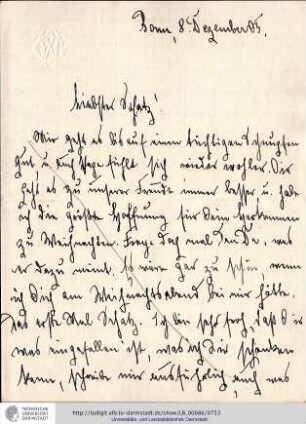 Bonn, 8. Dezember 05.
Liebster Schatz!
Mir geht es bis auf einen tüchtigen Schnupfen
gut u. auch Papa fühlt sich wieder wohler. Dir
geht es zu unserer Freude immer besser u. habe
ich die größte Hoffnung für Dein Herkommen
zu Weihnachten. Frage doch mal den Dr. was
er dazu meint. Es wäre gar zu schön, wenn
ich Dich am Weihnachtsabend bei mir hätte.
Das erste Mal Schatz. Ich bin sehr froh, daß Dir
was eingefallen ist, was ich Dir schenken
kann, schreibe mir ausführlich auch was
http://tudigit.ulb.tu-darmstadt.de/show/LB.00686/0733
Universitäts- und Landesbibliothek Darmstadt